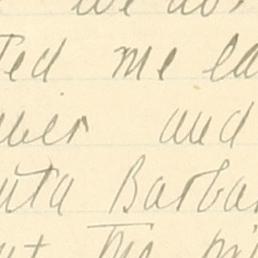 we do
ted me ea
ber and
nta Barba
ut the mi